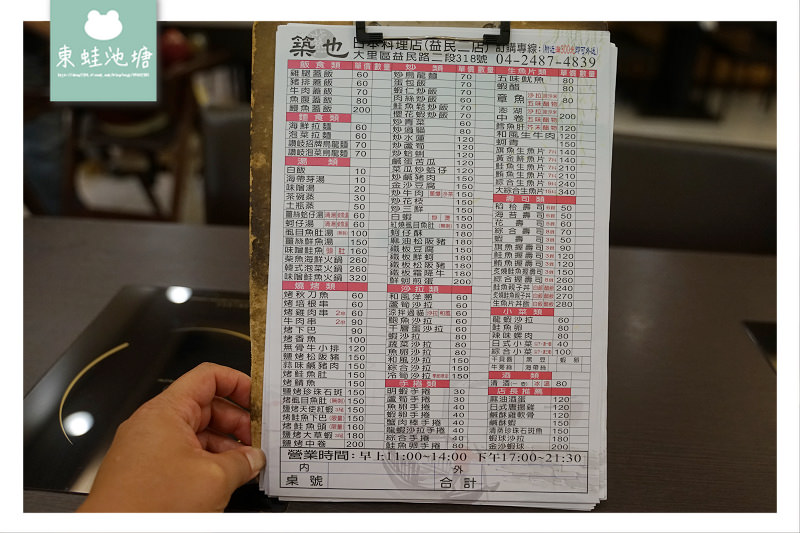 東蛙池塘
築也 日本料理店(益民二店) 訂購專線:
大里區益民路二段318號 04-2487-4839
飯食類 單價 數量
雞腿蓋飯 60
豬排蓋飯 60
牛肉蓋飯 70
魚腹蓋飯 80
鰻魚蓋飯 200
麵食類
海鮮拉麵 60
泡菜拉麵 60
讚岐招牌烏龍麵 70
讚岐泡菜烏龍麵 70
湯類
白飯 10
海帶芽湯 10
味噌湯 20
茶碗蒸 30
土瓶蒸 50
薑絲蛤仔湯
蚵仔湯
虱目魚肚湯 100
薑絲鮮魚湯 150
味噌鮭魚湯 160
柴魚海鮮火鍋 260
韓式泡菜火鍋 260
味噌鮭魚火鍋 320
燒烤類
烤秋刀魚 60
烤培根串 60
烤雞肉串 60
牛肉串 90
烤下巴 90
烤香魚 100
無骨牛小排 120
鹽烤松阪豬 150
蒜味鹹豬肉 150
烤鮭魚肚 150
烤鯖魚 150
鹽烤珍珠石斑 150
烤虱目魚肚 150
鹽烤天使紅蝦 150
烤鮭魚下巴 150
烤鮭魚頭 160
鹽烤大草蝦 180
鹽烤中卷 200
單價 數量
炒烏龍麵 70
蛋包飯 60
蝦仁炒飯 60
肉絲炒飯 60
鮭魚鬆炒飯 60
櫻花蝦炒飯 60
炒青菜 60
炒過貓 80
炒水蓮 120
炒蘆筍 120
炒蛤蜊 120
鹹蛋苦瓜 120
菜瓜炒蛤仔 120
炒鹹豬肉 150
金沙豆腐 150
炒牛肉 150
炒花枝 150
炒三鮮 150
白蝦 180
紅燒虱目魚肚 180
蚵仔酥 180
麻油松阪豬 180
鐵板豆腐 150
鐵板鮮蚵 180
鐵板松阪豬 180
鐵板霜降牛 180
鮮蚵煎蛋 200
沙拉類
和風洋蔥 60
蘆筍沙拉 60
涼拌過貓 60
鮪魚沙拉 60
千層蛋沙拉 60
蝦沙拉 80
蔬菜沙拉 80
魚卵沙拉 80
和風沙拉 150
綜合沙拉 150
冷筍沙拉 150
手捲類
明蝦手捲 30
蘆筍手捲 30
魚卵手捲 40
蝦卵手捲 40
蟹肉棒手捲 40
龍蝦沙拉手捲 40
綜合手捲 40
鮭魚卵手捲 60
生魚片類 單價 數量
五味魷魚 80
蝦醋 80
章魚
澎湖中卷 200
鱈魚肝 120
和風生牛肉 120
蚵青 150
旗魚生魚片 140
黃金鯡魚片 140
鮭魚生魚片 210
鮪魚生魚片 210
綜合生魚片 210
大綜合生魚片 340
壽司類
稻禾壽司 50
海苔壽司 50
花壽司 60
綜合壽司 70
蝦壽司 50
旗魚握壽司 90
鮭魚握壽司 120
鮪魚握壽司 120
炙燒鮭魚握壽司 150
綜合握壽司 260
鮭魚親子丼 240
炙燒鮭魚親子丼 270
生魚片丼飯 280
小菜類
龍蝦沙拉 60
鮭魚卵 80
辣味螺肉 80
日式小菜 40
綜合小菜 100
酒類
清酒 80
店長推薦
麻油酒蛋 120
日式裹揚雞 120
鹹酥雞軟骨 120
鹹酥蝦 150
清蒸珍珠石斑魚 150
蝦球沙拉 150
金沙蝦球 200
營業時間:早上11:00~14:00 下午17:00~21:30
內 外
桌號 合計